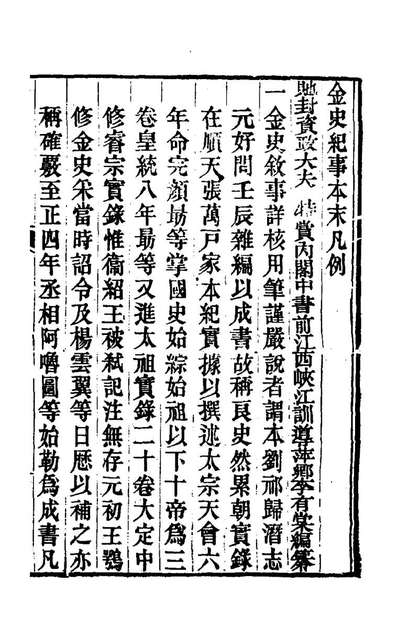 金史紀事本末凡例
馳封資政大夫 特賞內閣中書前江西峽江訓導萍鄉李有棠編纂
一金史敘事詳核用筆謹嚴說者謂本劉祁歸潛志
元好問壬辰雜編以成書故稱良史然累朝實錄
在順天張萬戶家本紀實據以撰述太宗天會六
年命完顏勗等掌國史始綜始祖以下十帝為三
卷皇統八年勗等又進太祖實錄二十卷大定中
修睿宗實錄惟衞紹王被弒記注無存元初王鶚
修金史采當時詔令及楊雲翼等日曆以補之亦
稱確覈至正四年丞相阿魯圖等始勒為成書凡